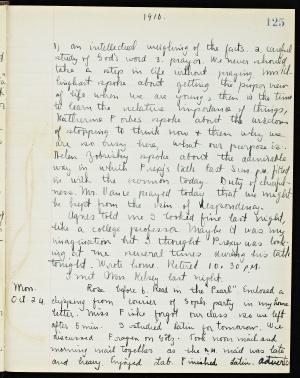 1910.
125
1, an intellectual weighing of the facts. 2. careful
study of God's word 3. prayer. We never should
take a step in life without praying. Mrs.
spoke about getting the proper view
of life when we are young; then is the time
to learn the relative importance of things,
Katherine Forbes spoke about the wisdom
of stopping to think now & then why we
are so busy here, what our purpose is.
Helen spoke about the admirable
way in which Prexy's talk last Sun. p.m. fitted
in with the sermon today. Duty of cheerful-
ness. Mr. Vance prayed today that we might
be kept from the sin of despondency.
Agnes told me I looked fine last night,
like a college professor. Maybe it was my
imagination but I thought Prexy was look-
ing at me several times during his talk
tonight. Wrote home. Retired 10.30 p.m.
I met Mrs. Kelsey last night.
Mon.
Oct. 24.
Rose before 6. Read in the "Pearl" Enclosed a
clipping from Courier of Soph. party in my home
letter. Miss Fiske forgot our class so we left
after 5 min. I studied Latin for tomorrow. We
discussed in Eng. Took noon mail and
morning mail together as the A.M. mail was late
and heavy. Enjoyed Lab. Finished Latin.